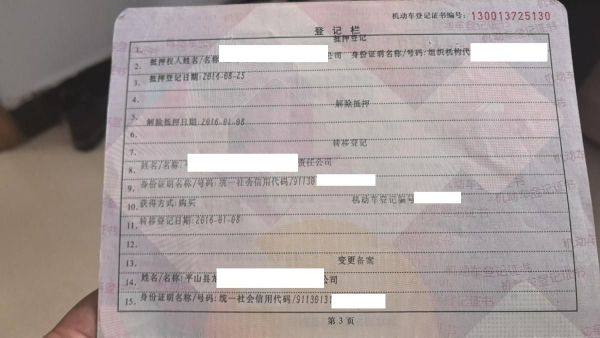 登记栏 机动车登记证书编号：130013725130
1. 抵押登记
2. 抵押权人姓名/名称 公司 身份证明名称/号码:组织机构代
3. 抵押登记日期:2014-08-25
4. 解除抵押
5. 解除抵押日期:2016-01-08
6.
7. 转移登记
8. 姓名/名称: 责任公司
9. 身份证明名称/号码:统一社会信用代码/91130
10. 获得方式:购买 机动车登记编号
11. 转移登记日期:2016-01-08
12.
13. 变更备案
14. 姓名/名称:平山县 公司
15. 身份证明名称/号码:统一社会信用代码/9113013
第 3 页